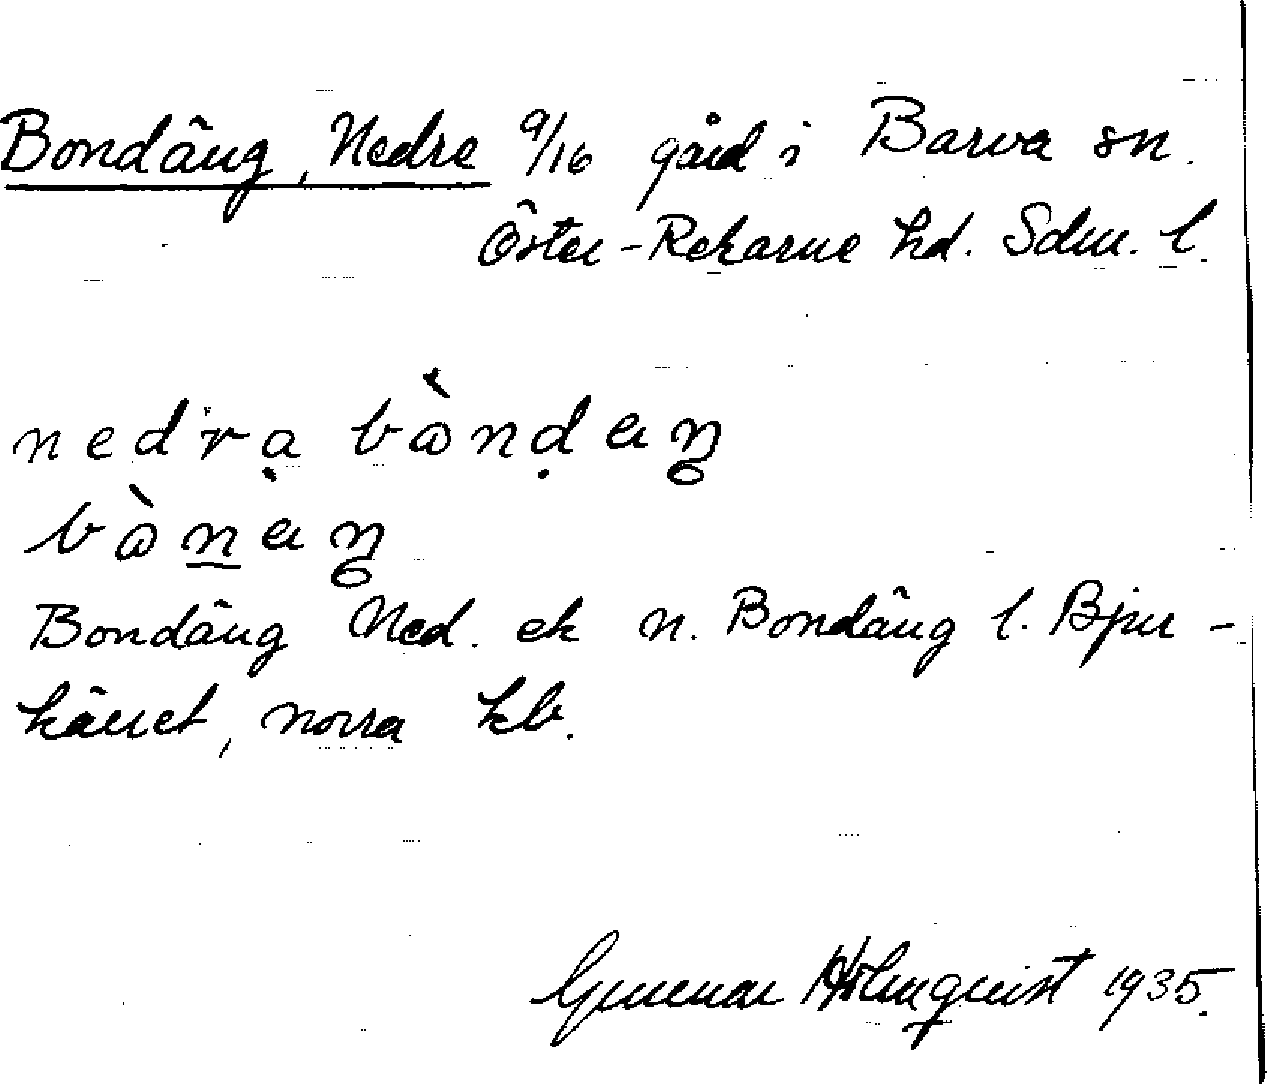 Bondäng, Nedre 9/16 gård i Barva sn.
Öster-Rekarne hd. Södm. l.
nedra bòndäŋ
bònäŋ
Bondäng Ned. ek n. Bondäng l. Bjur-
kärret, norra kb.
Gunnar Holmquist 1935.